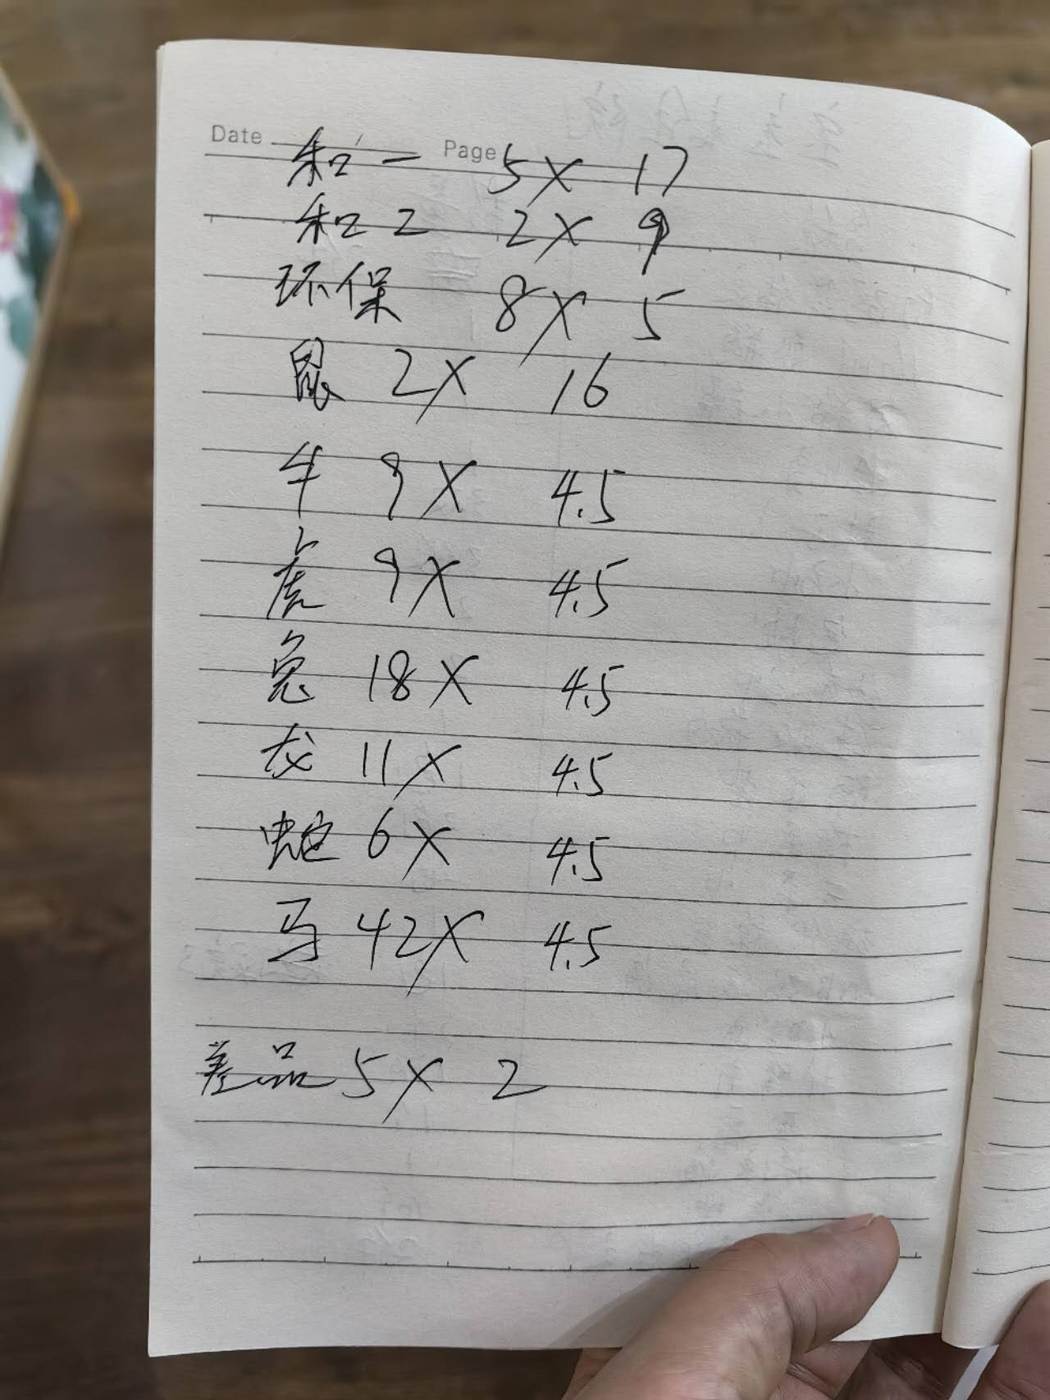 Date Page
和一 5X 17
和2 2X 9
环保 8X 5
鼠 2X 16
牛 9X 4.5
虎 9X 4.5
兔 18X 4.5
龙 11X 4.5
蛇 6X 4.5
马 42X 4.5
差品 5X 2